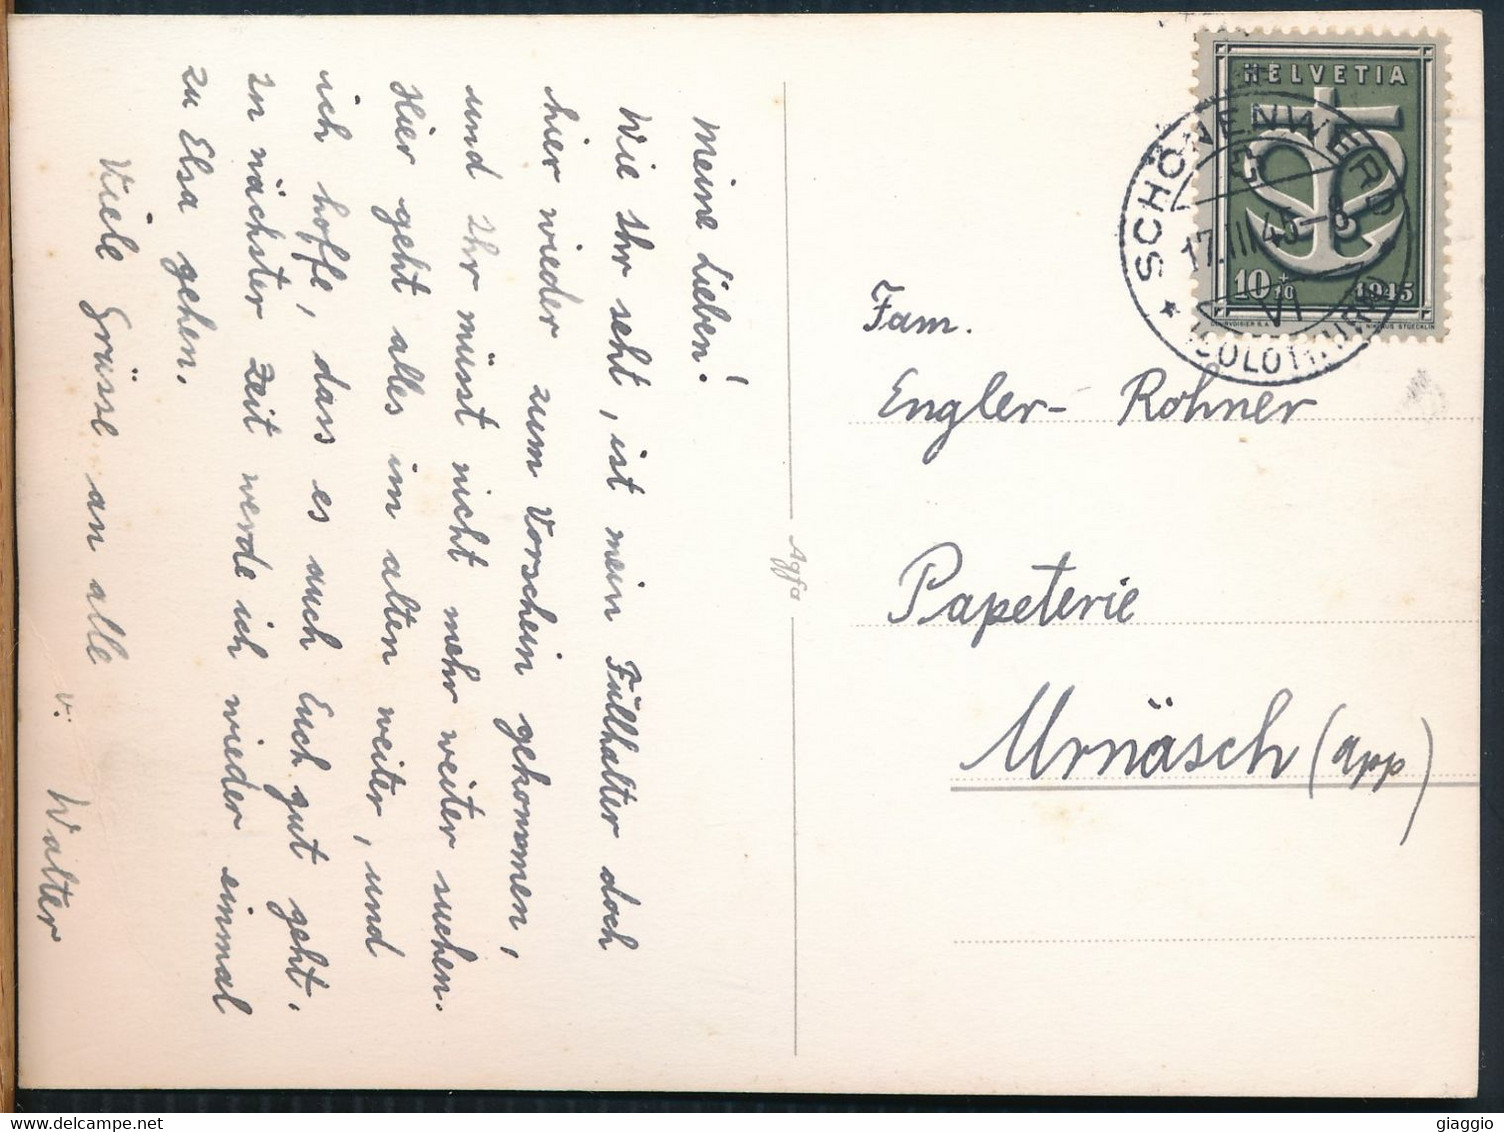 Meine Lieben!
Wie Ihr seht, ist mein Füllhalter doch
hier wieder zum Vorschein gekommen,
und Ihr müsst nicht mehr weiter suchen.
Hier geht alles im alten weiter, und
ich hoffe, dass es auch Euch gut geht.
In nächster Zeit werde ich wieder einmal
zu Elsa gehen.
Viele Grüsse an alle
v. Walter
Agfa
HELVETIA
10+10 1945
COURVOISIER S.A. NIKLAUS STOECKLIN
SCHÖNENWERD
17.III.45–8
VI
(SOLOTHURN)
Fam.
Engler- Rohner
Papeterie
Urnäsch (App)
giaggio